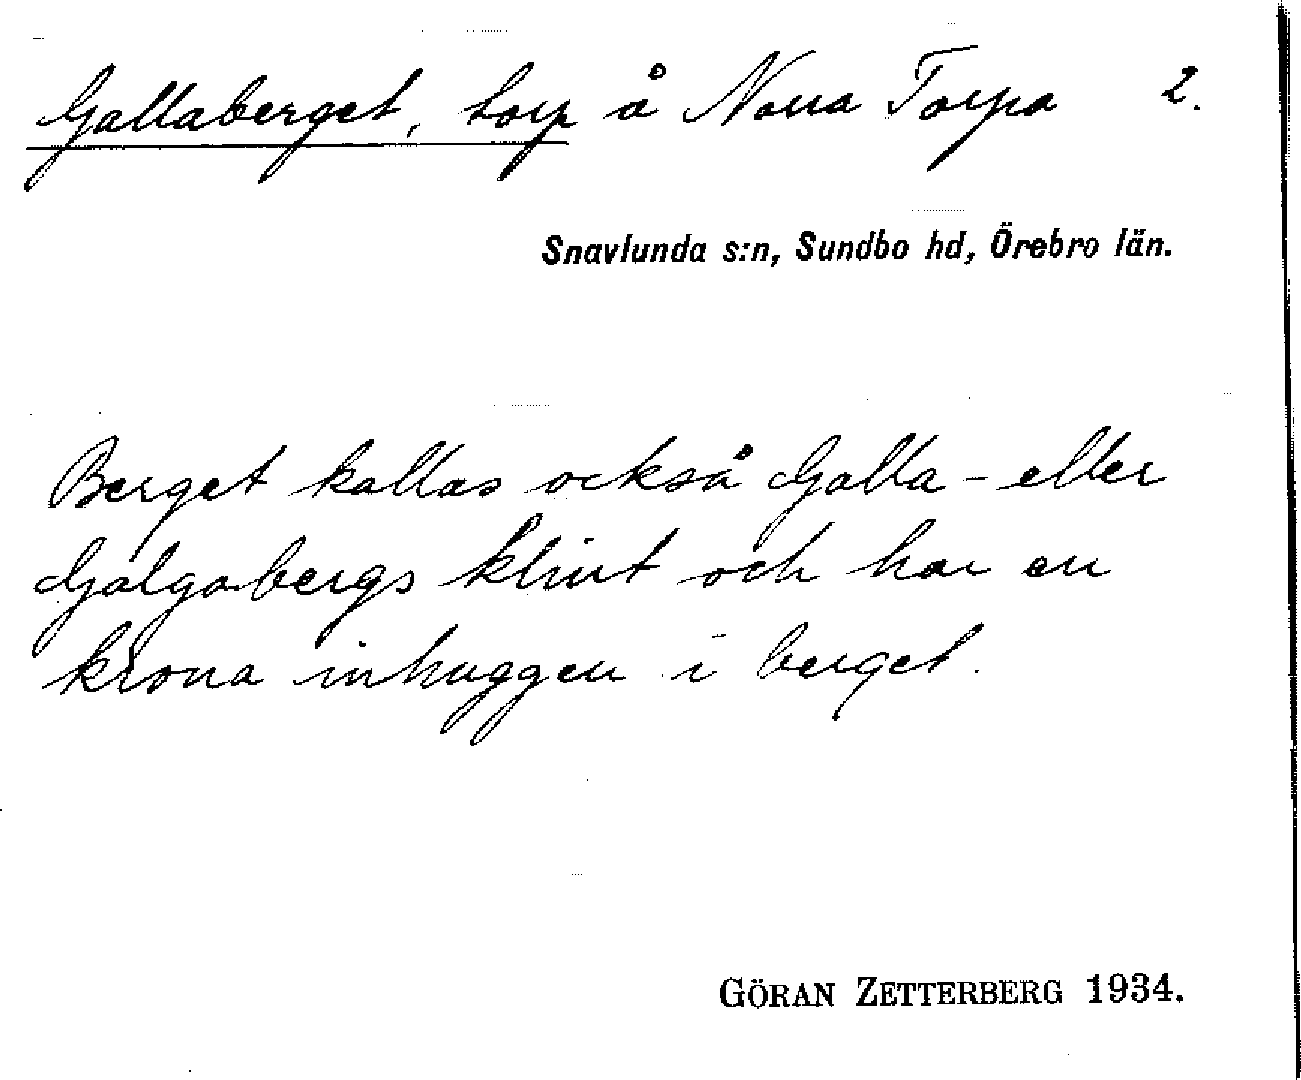 Gallaberget, torp å Norra Torpa 2.
Snavlunda s:n, Sundbo hd, Örebro län.
Berget kallas också Galla- eller
Galgabergs klint och har en
krona inhuggen i berget.
GÖRAN ZETTERBERG 1934.